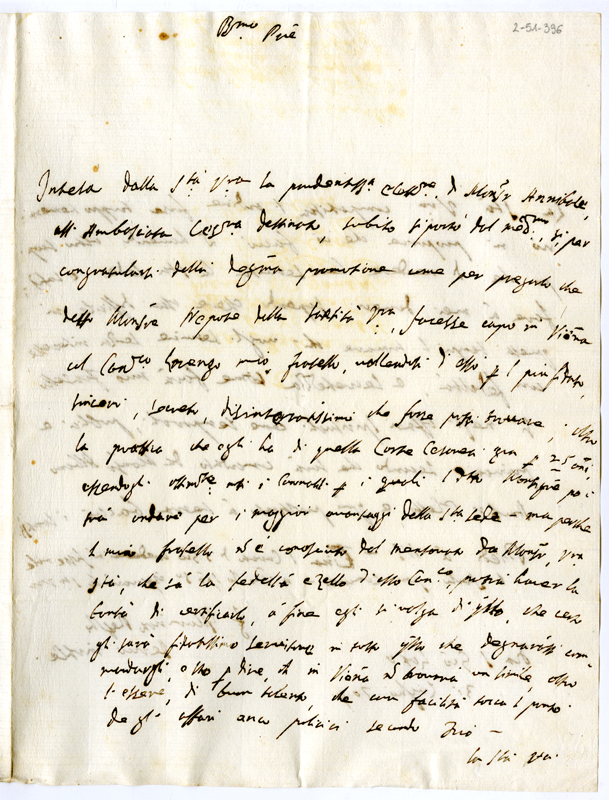 Bmo Prē
2-51-396
Intesa dalla Stà Vra la prudentissa elettne di Monsr Annibale
all Ambasciata Cesarea destinato, subito si portò dal medmo, sì per
congratularsi della degma promotione come per pregarlo, che
detto Monsre Nepote della Santità Vra, facesse capo in Viēna
al Canco Lorenzo mio fratello, vallendosi d'esso p il più fidato,
sincero, secreto, disinteressatissimo che forse possi trovare, oltre
la prattica che egli ha di quella Corte Cesarea già p 25 anni,
essendogli ottimte noti i Cannalli p i quali detto Monsigre po
trà andare per i maggiori avantaggi della Sta Sede - ma perche
il mio fratello nō è conosciuto dal mentovato Monsr, Vra
Stà, che sà la fedeltà e zello d'esso Canco, potrà haver la
bontà di certificarlo, à fine egli si volga d'esso, che certo
gli sarà fidatissimo servitore in tutto che degnarassi com
mandargli, oso p dire, ch in Viēna nō troverà un simile, oltre
l'essere di buon talento, che con facilità tocca il punto
de gl' affari anco politici secondo Dio -
la Stà Vra